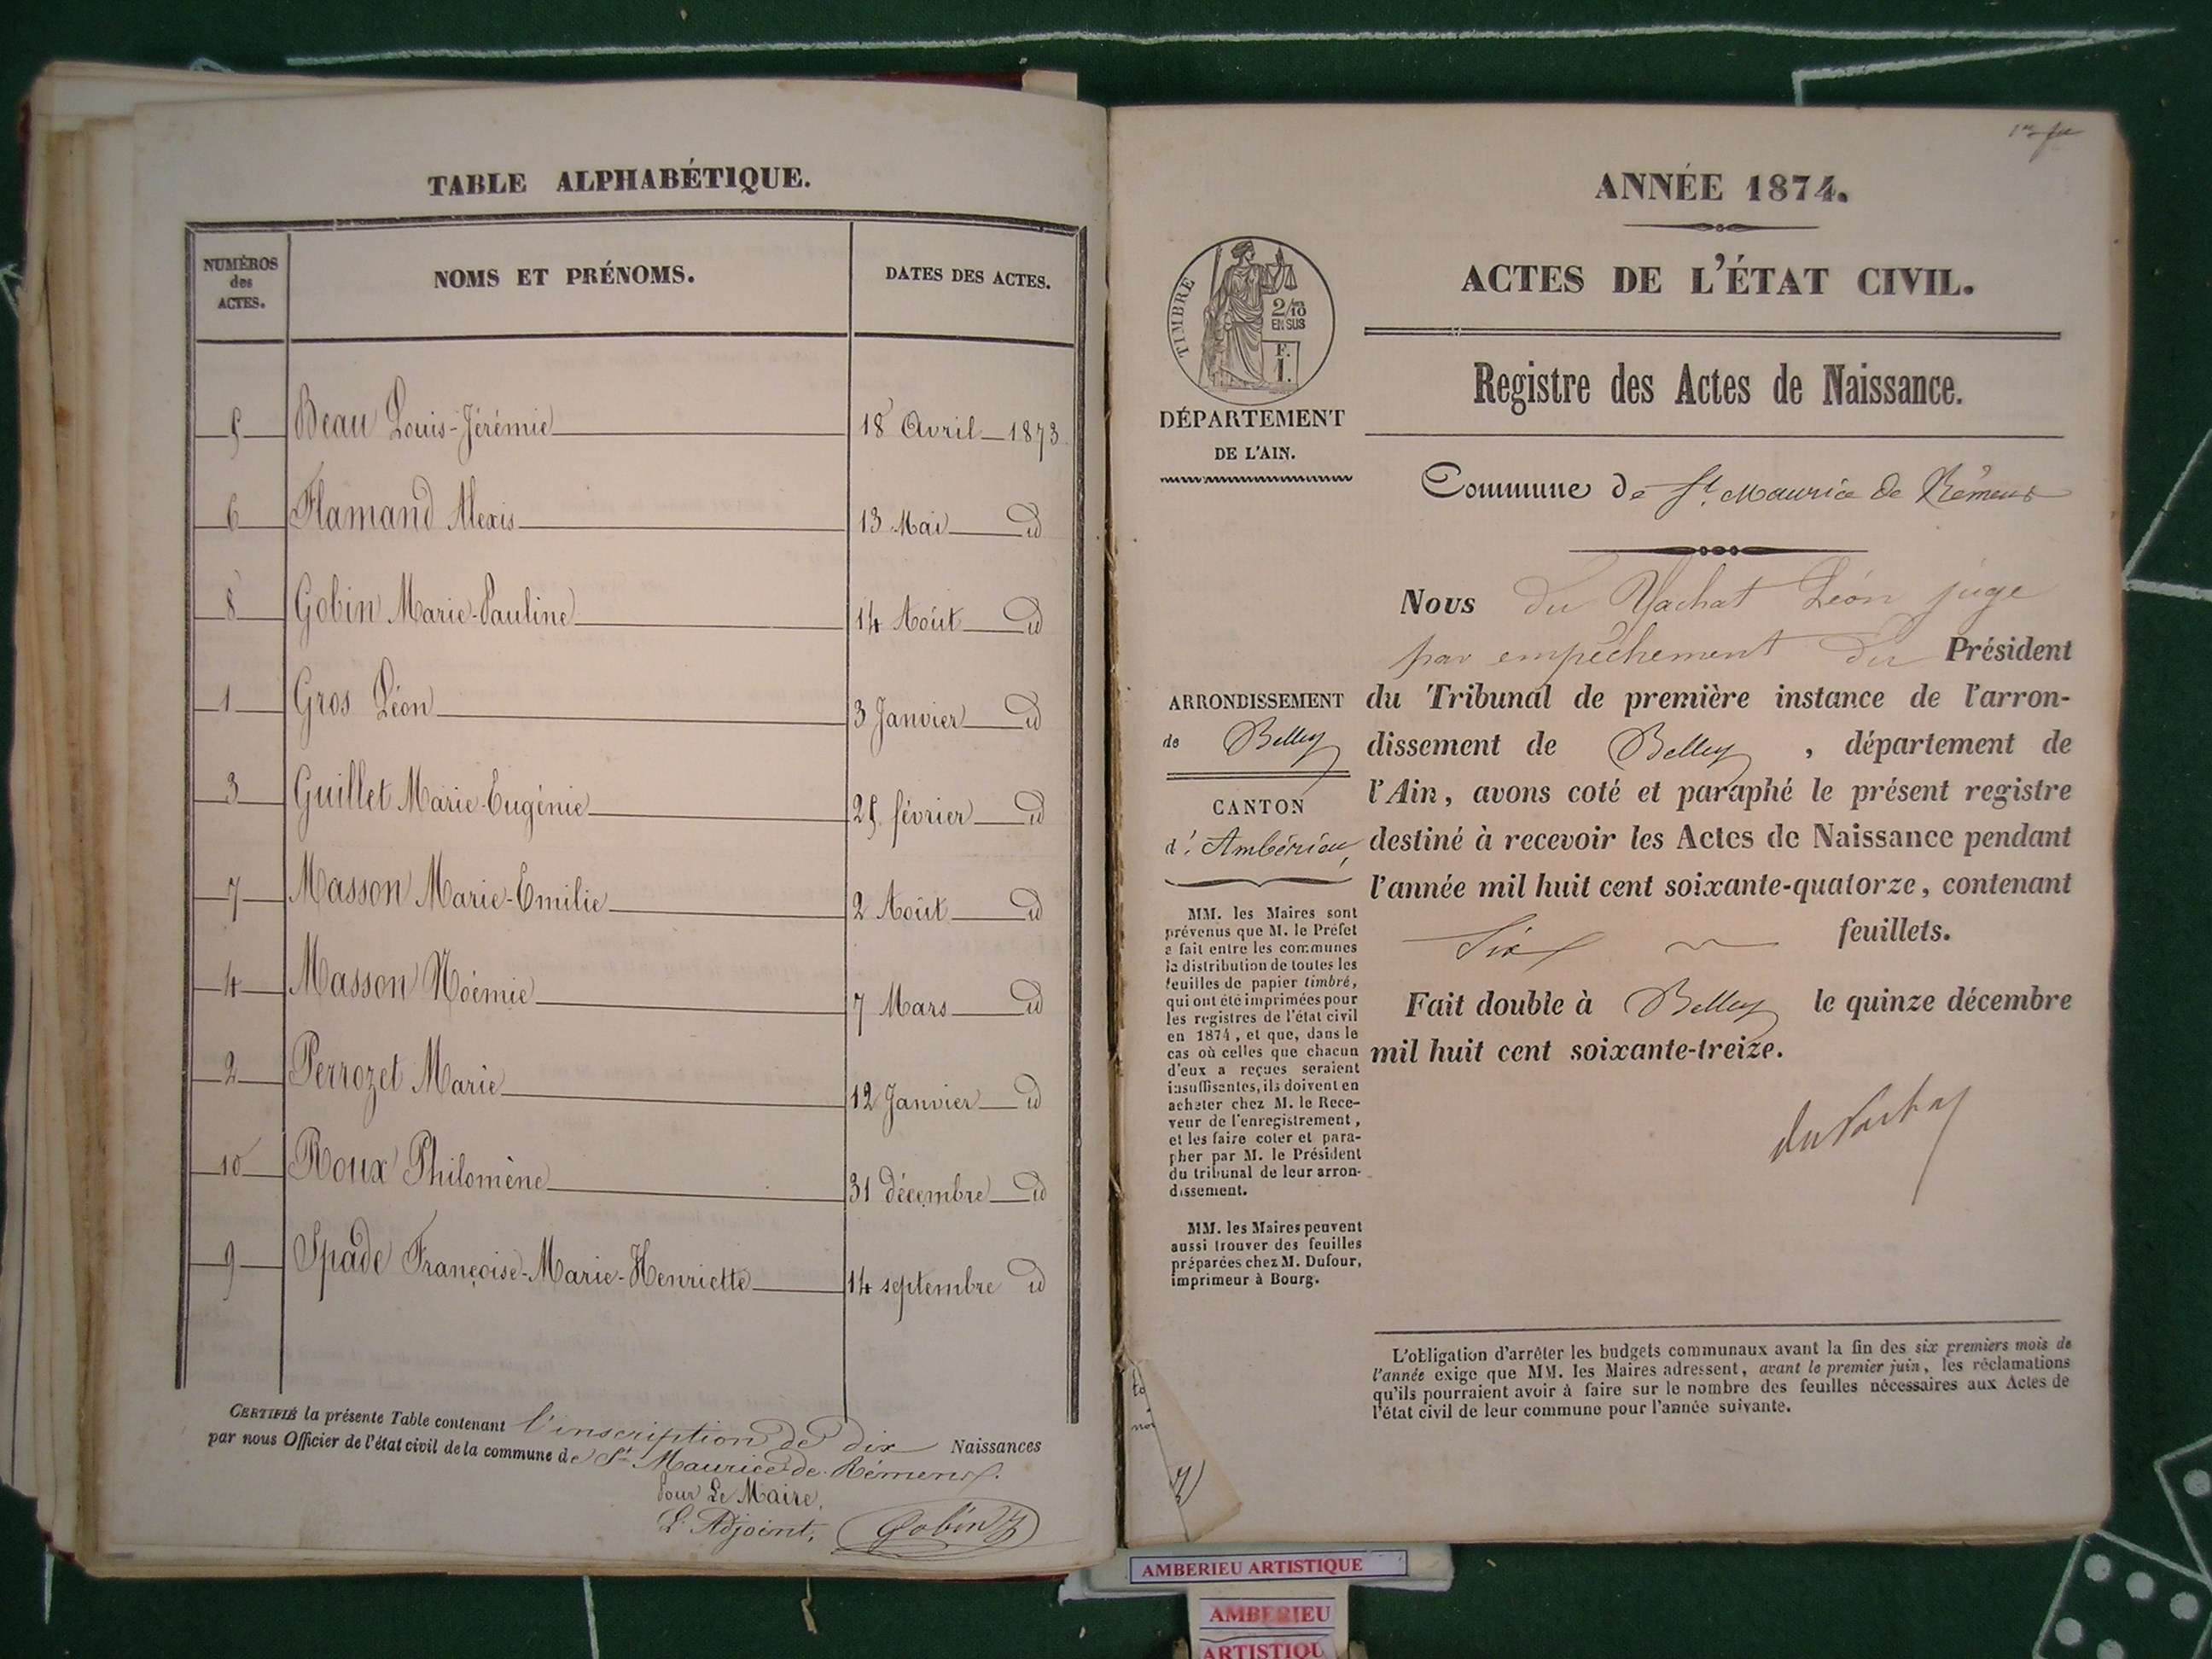 TABLE ALPHABÉTIQUE.
NUMÉROS
des
ACTES.
NOMS ET PRÉNOMS.
DATES DES ACTES.
5 Beau Louis-Jérémie 18 Avril 1873
6 Flamand Alexis 13 Mai id
8 Gobin Marie-Pauline 14 Août id
1 Gros Léon 3 Janvier id
3 Guillet Marie-Eugénie 25 février id
7 Masson Marie-Emilie 2 Août id
4 Masson Noémie 7 Mars id
2 Perrozet Marie 12 Janvier id
10 Roux Philomène 31 décembre id
9 Spade Françoise-Marie-Henriette 14 septembre id
CERTIFIÉ la présente Table contenant l'inscription de dix Naissances
par nous Officier de l'état civil de la commune de St Maurice de Rémens.
Pour Le Maire,
L'Adjoint, Gobin
ANNÉE 1874.
ACTES DE L'ÉTAT CIVIL.
TIMBRE
2/10
EN SUS
F.
1.
DÉPARTEMENT
DE L'AIN.
Registre des Actes de Naissance.
Commune de St Maurice de Rémens
Nous du Vachat Léon juge
par empêchement du Président
du Tribunal de première instance de l'arron-
dissement de Belley, département de
l'Ain, avons coté et paraphé le présent registre
destiné à recevoir les Actes de Naissance pendant
l'année mil huit cent soixante-quatorze, contenant
Six feuillets.
Fait double à Belley le quinze décembre
mil huit cent soixante-treize.
du Vachat
ARRONDISSEMENT
de Belley
CANTON
d'Ambérieu
MM. les Maires sont
prévenus que M. le Préfet
a fait entre les communes
la distribution de toutes les
feuilles de papier timbré,
qui ont été imprimées pour
les registres de l'état civil
en 1874, et que, dans le
cas où celles que chacun
d'eux a reçues seraient
insuffisantes, ils doivent en
acheter chez M. le Rece-
veur de l'enregistrement,
et les faire coter et para-
pher par M. le Président
du tribunal de leur arron-
dissement.
MM. les Maires peuvent
aussi trouver des feuilles
préparées chez M. Dufour,
imprimeur à Bourg.
L'obligation d'arrêter les budgets communaux avant la fin des six premiers mois de
l'année exige que MM. les Maires adressent, avant le premier juin, les réclamations
qu'ils pourraient avoir à faire sur le nombre des feuilles nécessaires aux Actes de
l'état civil de leur commune pour l'année suivante.
AMBERIEU ARTISTIQUE
AMBERIEU
ARTISTIQU